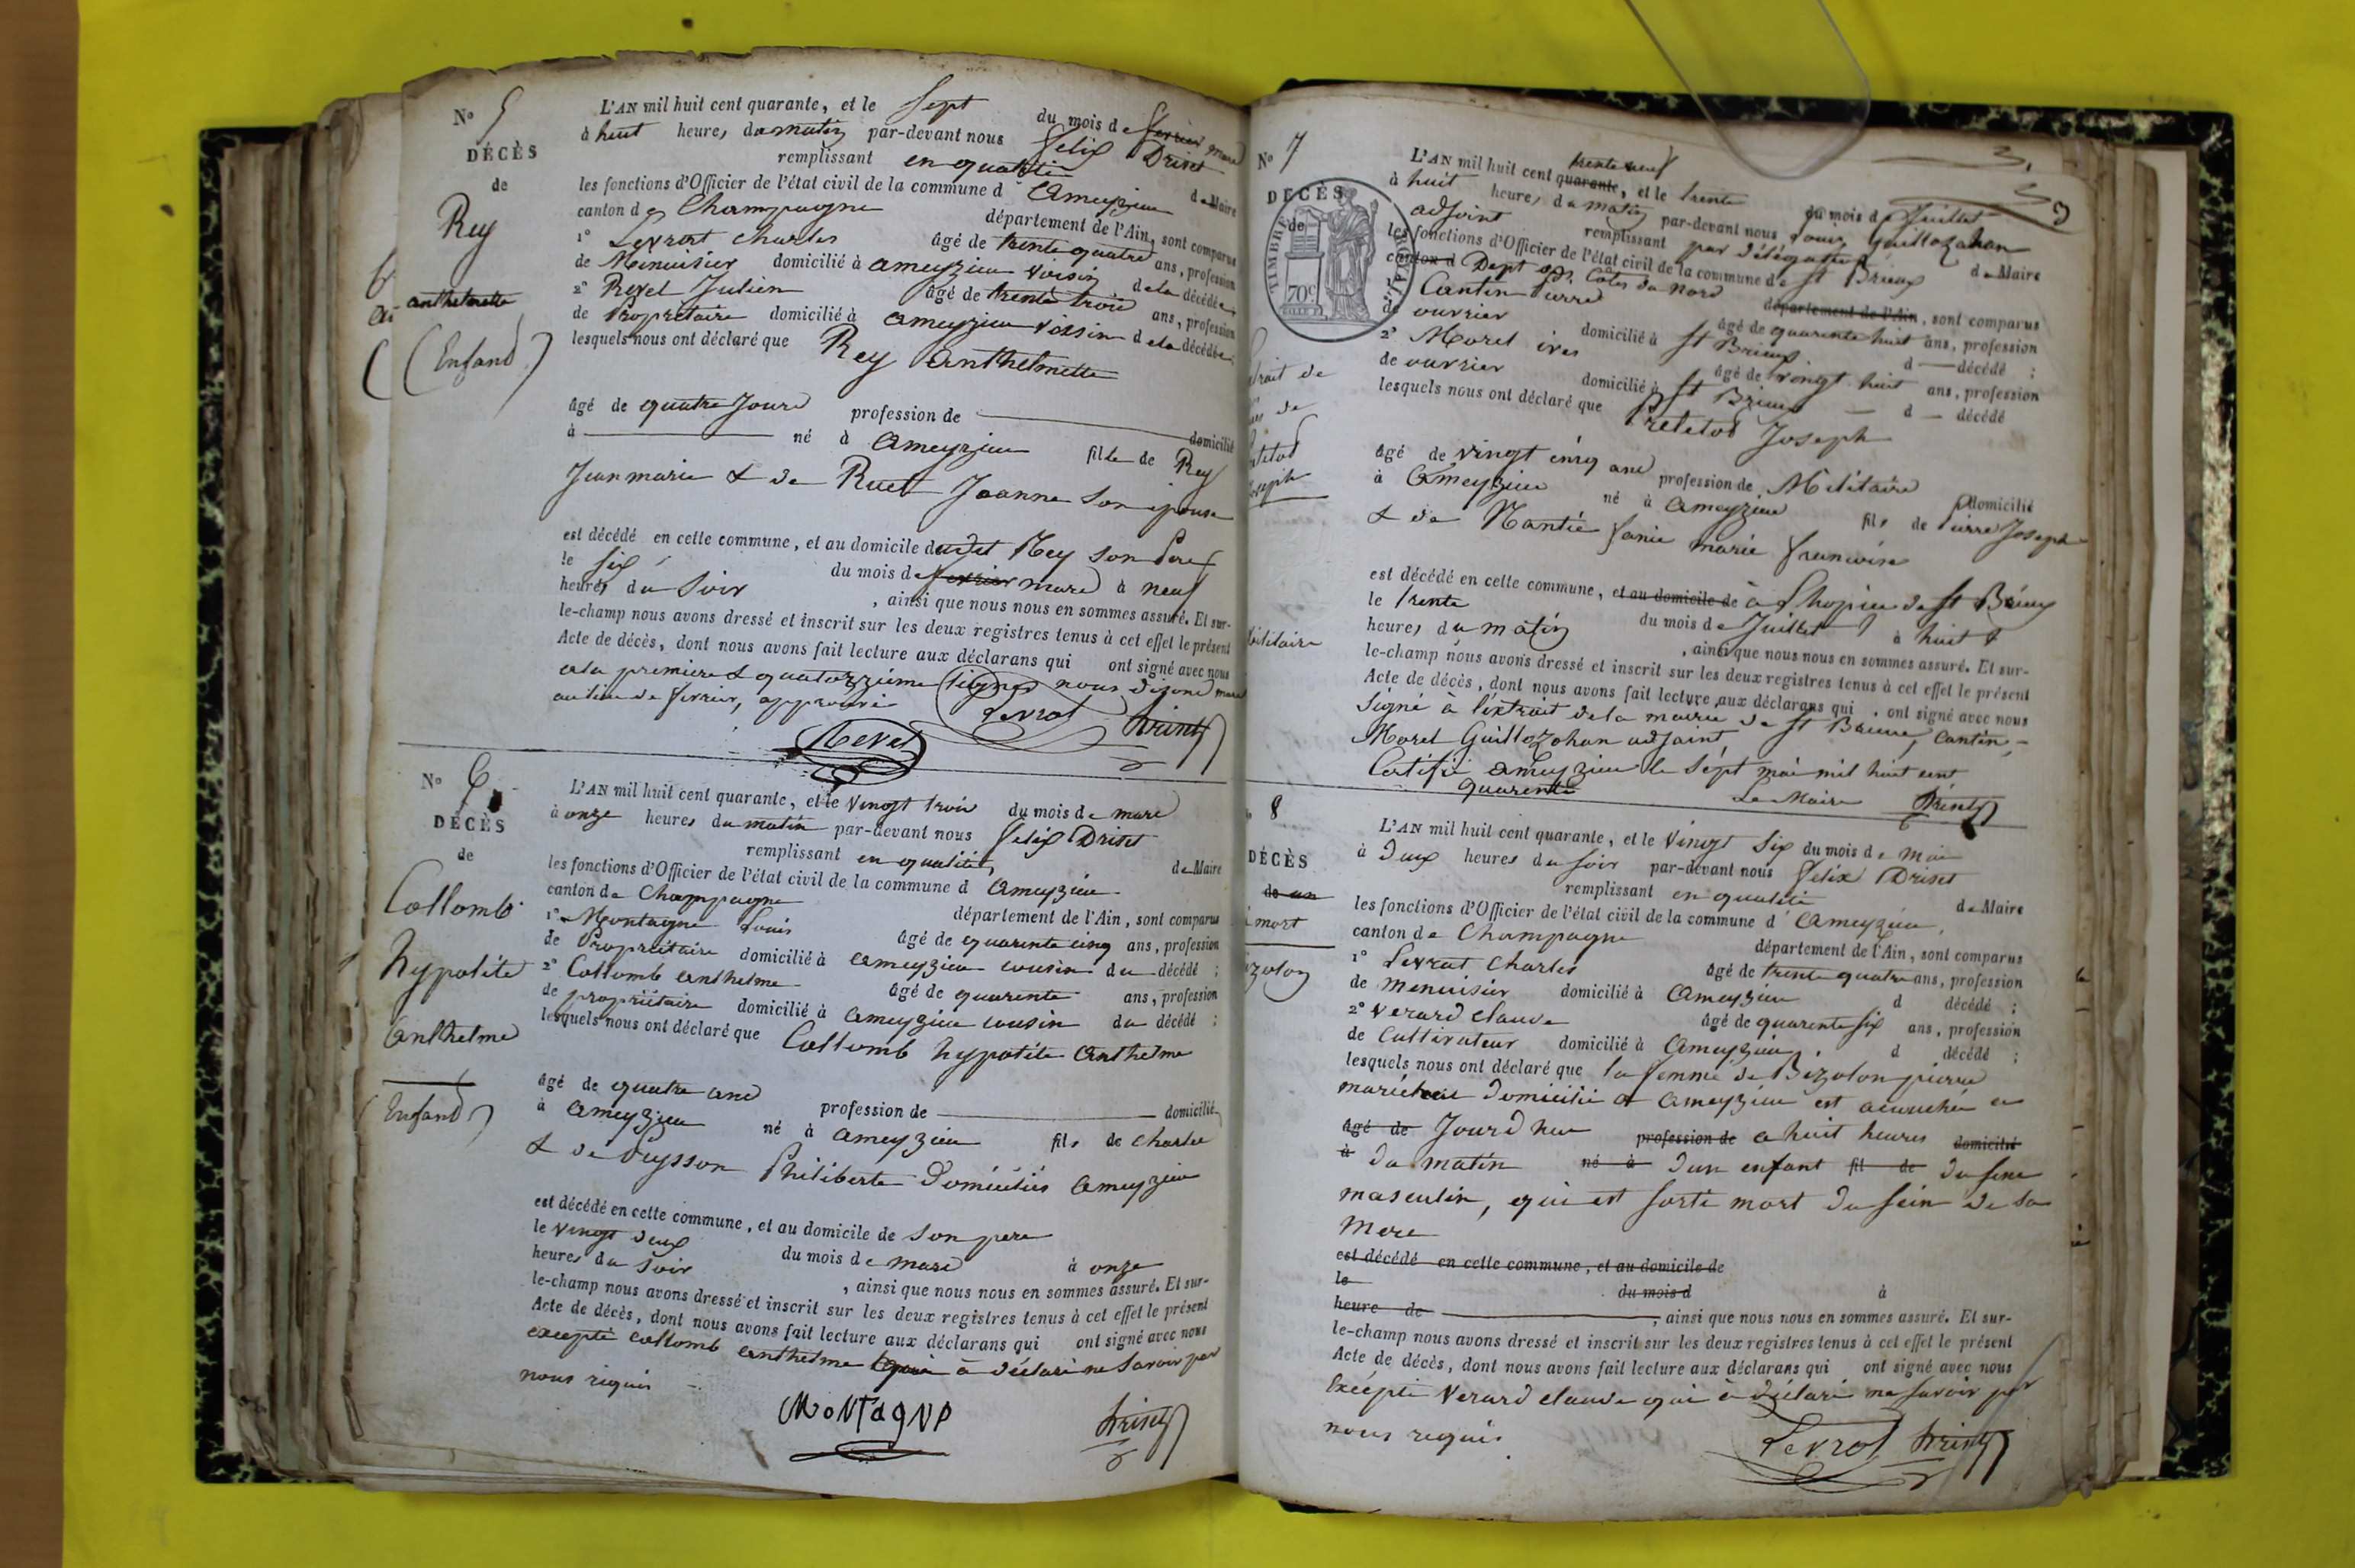 N° 5
DÉCÈS
de
Rey
anthelmette
(Enfand)
L'AN mil huit cent quarante, et le Sept du mois de fevrier mars
à huit heures du matin par-devant nous Felix Driset
remplissant en qualité de Maire
les fonctions d'Officier de l'état civil de la commune d Ameyzieu
canton de Champagne département de l'Ain, sont comparus
1° Levrat Charles âgé de trente quatre ans, profession
de Menuisier domicilié à ameyzieu voisin de la décédée
2° Revel Julien âgé de trente trois ans, profession
de Propriétaire domicilié à ameyzieu voisin de la décédée
lesquels nous ont déclaré que Rey Anthelmette
âgé de quatre Jours profession de domicilié
à né à Ameyzieu fille de Rey
Jean marie & de Ruet Jeanne Son épouse
est décédé en cette commune, et au domicile dudit Rey son Père
le six du mois de fevrier mars à neuf
heures du Soir , ainsi que nous nous en sommes assuré. Et sur-
le-champ nous avons dressé et inscrit sur les deux registres tenus à cet effet le présent
Acte de décès, dont nous avons fait lecture aux déclarans qui ont signé avec nous
a la premiere & quatorzième lignes nous disons mars
au lieu de fevrier, approuvé
Levrat
Revel
N° 6
DÉCÈS
de
Collomb
hypolite
Anthelme
(Enfand)
L'AN mil huit cent quarante, et le vingt trois du mois de mars
à onze heures du matin par-devant nous Felix Driset
remplissant en qualité de Maire
les fonctions d'Officier de l'état civil de la commune d Ameyzieu
canton de Champagne département de l'Ain, sont comparus
1° Montagne Louis âgé de quarente cinq ans, profession
de Propriétaire domicilié à ameyzieu cousin du décédé ;
2° Collomb anthelme âgé de quarente ans, profession
de propriétaire domicilié à ameyzieu cousin du décédé ;
lesquels nous ont déclaré que Collomb hypolite Anthelme
âgé de quatre ans profession de domicilié
à Ameyzieu né à Ameyzieu fils de Charles
& de Puysson Philiberte Domiciliés Ameyzieu
est décédé en cette commune, et au domicile de Son pere
le vingt deux du mois de mars à onze
heures du Soir , ainsi que nous nous en sommes assuré. Et sur-
le-champ nous avons dressé et inscrit sur les deux registres tenus à cet effet le présent
Acte de décès, dont nous avons fait lecture aux déclarans qui ont signé avec nous
excepté Collomb anthelme qui à déclaré ne Savoir par
nous requis
MoNTagNe
3
N° 7
DÉCÈS
de
TIMBRE ROYAL
70c
trait de
de
Joseph
Militaire
trente neuf
L'AN mil huit cent quarante, et le trente du mois de Juillet
à huit heures du matin par-devant nous Louis Guillozohan
adjoint remplissant par délégation de Maire
les fonctions d'Officier de l'état civil de la commune de St Brieux
canton d Dept des Côtes du Nord département de l'Ain, sont comparus
1° Cantin Pierre âgé de quarente huit ans, profession
de ouvrier domicilié à St Brieux d décédé ;
2° Morel ives âgé de vingt huit ans, profession
de ouvrier domicilié à St Brieux d décédé
lesquels nous ont déclaré que Pretetod Joseph
âgé de vingt cinq ans profession de Militaire domicilié
à Ameyzieu né à Ameyzieu fils de Pierre Joseph
& de Nantié fanie marie francoise
est décédé en cette commune, et au domicile de à l'hopice de St Brieux
le trente du mois de Juillet à huit
heures du matin , ainsi que nous nous en sommes assuré. Et sur-
le-champ nous avons dressé et inscrit sur les deux registres tenus à cet effet le présent
Acte de décès, dont nous avons fait lecture aux déclarans qui ont signé avec nous
Signé à l'extrait de la mairie de St Brieux, Cantin,
Morel Guillozohan adjoint,
Certifié ameyzieu le Sept mai mil huit cent
quarente Le Maire
8
DÉCÈS
de un
mort
L'AN mil huit cent quarante, et le vingt Six du mois de mai
à deux heures du soir par-devant nous Felix Driset
remplissant en qualité de Maire
les fonctions d'Officier de l'état civil de la commune d Ameyzieu
canton de Champagne département de l'Ain, sont comparus
1° Levrat Charles âgé de trente quatre ans, profession
de menuisier domicilié à Ameyzieu d décédé ;
2° Verard claude âgé de quarente six ans, profession
de Cultivateur domicilié à Ameyzieu d décédé ;
lesquels nous ont déclaré que la femme de Bezolon pierre
maréchal domicilié a ameyzieu est accouchée ce
âgé de Jourd hui profession de a huit heures domicilié
à du matin né à d'un enfant fil de du sexe
masculin, qui est Sorti mort du sein de Sa
mere
est décédé en cette commune, et au domicile de
le du mois d à
heure de , ainsi que nous nous en sommes assuré. Et sur-
le-champ nous avons dressé et inscrit sur les deux registres tenus à cet effet le présent
Acte de décès, dont nous avons fait lecture aux déclarans qui ont signé avec nous
Excepté Verard claude qui à déclaré ne savoir par
nous requis
Levrat